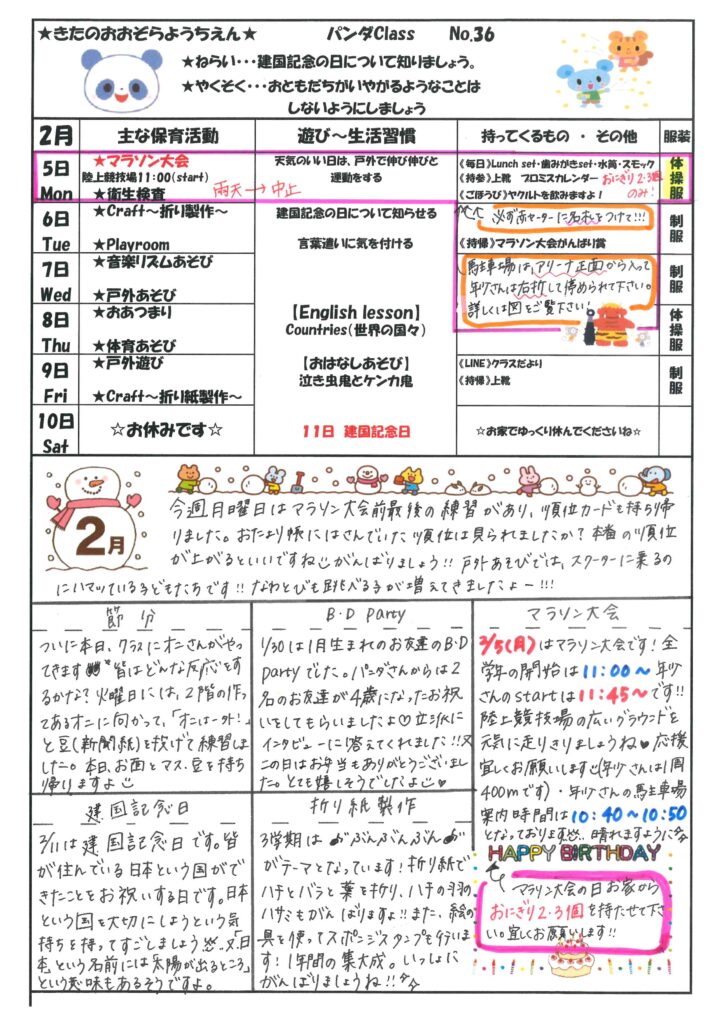 ★きたのおおぞらようちえん★ パンダClass No.36
★ねらい・・・建国記念の日について知りましょう。
★やくそく・・・おともだちがいやがるようなことは
しないようにしましょう
2月 主な保育活動 遊び～生活習慣 持ってくるもの ・ その他 服装
5日 Mon
★マラソン大会
陸上競技場11:00(start)
★衛生検査
雨天→中止
天気のいい日は、戸外で伸び伸びと
運動をする
《毎日》Lunch set・歯みがきset・水筒・スモック
《持参》上靴 プロミスカレンダー おにぎり2・3個
のみ!
《ごほうび》ヤクルトを飲みますよ！
体操服
6日 Tue
★Craft～折り製作～
★Playroom
建国記念の日について知らせる
言葉遣いに気を付ける
必ず赤セーターに名札をつけて!!!
《持帰》マラソン大会がんばり賞
制服
7日 Wed
★音楽リズムあそび
★戸外あそび
馬主車場は、アリーナ正面から入って
年少さんは右折して停められて下さい。
詳しくは図をご覧下さい!
制服
8日 Thu
★おあつまり
★体育あそび
【English lesson】
Countries(世界の国々)
体操服
9日 Fri
★戸外遊び
★Craft～折り紙製作～
【おはなしあそび】
泣き虫鬼とケンカ鬼
《LINE》クラスだより
《持帰》上靴
制服
10日 Sat
☆お休みです☆
11日 建国記念日
☆お家でゆっくり休んでくださいね☆
2月
今週月曜日はマラソン大会前最後の練習があり、順位カードも持ち帰
りました。おたより帳にはさんでいた順位は見られましたか？本番の順位
が上がるといいですね がんばりましょう!! 戸外あそびでは、スクーターに乗るの
にハマッている子どもたちです!! なわとびも跳べる子が増えてきましたよー!!!
節分
ついに本日、クラスにオニさんがやっ
てきます 皆はどんな反応をす
るかな？火曜日には、2階の作っ
てあるオニに向かって、「オニは一外！」
と豆(新聞紙)を投げて練習しまし
た。本日、お面とマス・豆を持ち
帰りますよ
B・D Party
1/30は1月生まれのお友達のB・D
Partyでした。パンダさんからは2
名のお友達が4歳になったお祝
いをしてもらいましたよ♡立派に
インタビューに答えてくれました!!又
この日はお弁当もありがとうございまし
た。とても嬉しそうでしたよ♡
マラソン大会
2/5(月)はマラソン大会です！全
学年の開始は11:00～年少
さんのstartは11:45～です!!
陸上競技場の広いグラウンドを
元気に走りきりましょうね♥応援
宜しくお願いします(年少さんは1周
400mです)・年少さんの馬主車場
案内時間は10:40～10:50
となっております 晴れますように
建国記念日
2/11は建国記念日です。皆
が住んでいる日本という国がで
きたことをお祝いする日です。日本
という国を大切にしようという気
持ちを持ってすごしましょう 又「日
本」という名前には「太陽が出るところ」
という意味もあるそうですよ。
折り紙製作
3学期は ぶんぶんぶん
がテーマとなっています！折り紙で
ハチとバラと葉を折り、ハチの羽の
ハサミもがんばりますよ!!また、絵の
具を使ってスポンジスタンプも行いま
す！1年間の集大成。いっしょに
がんばりましょうね!!
HAPPY BIRTHDAY
マラソン大会の日お家から
おにぎり2・3個を持たせて下さ
い。宜しくお願いします!!